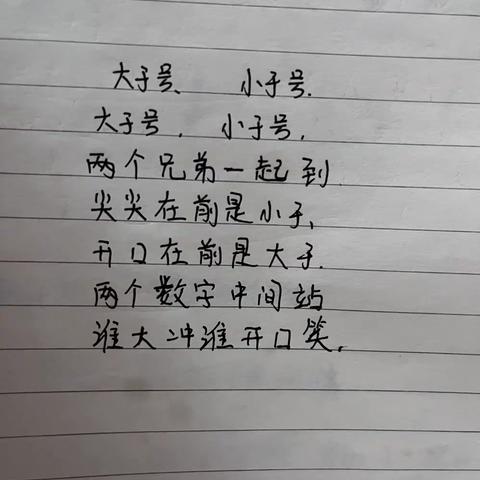 大于号、 小于号.
大于号, 小于号,
两个兄弟一起到.
尖尖在前是小于、
开口在前是大于.
两个数字中间站
谁大冲谁开口笑.